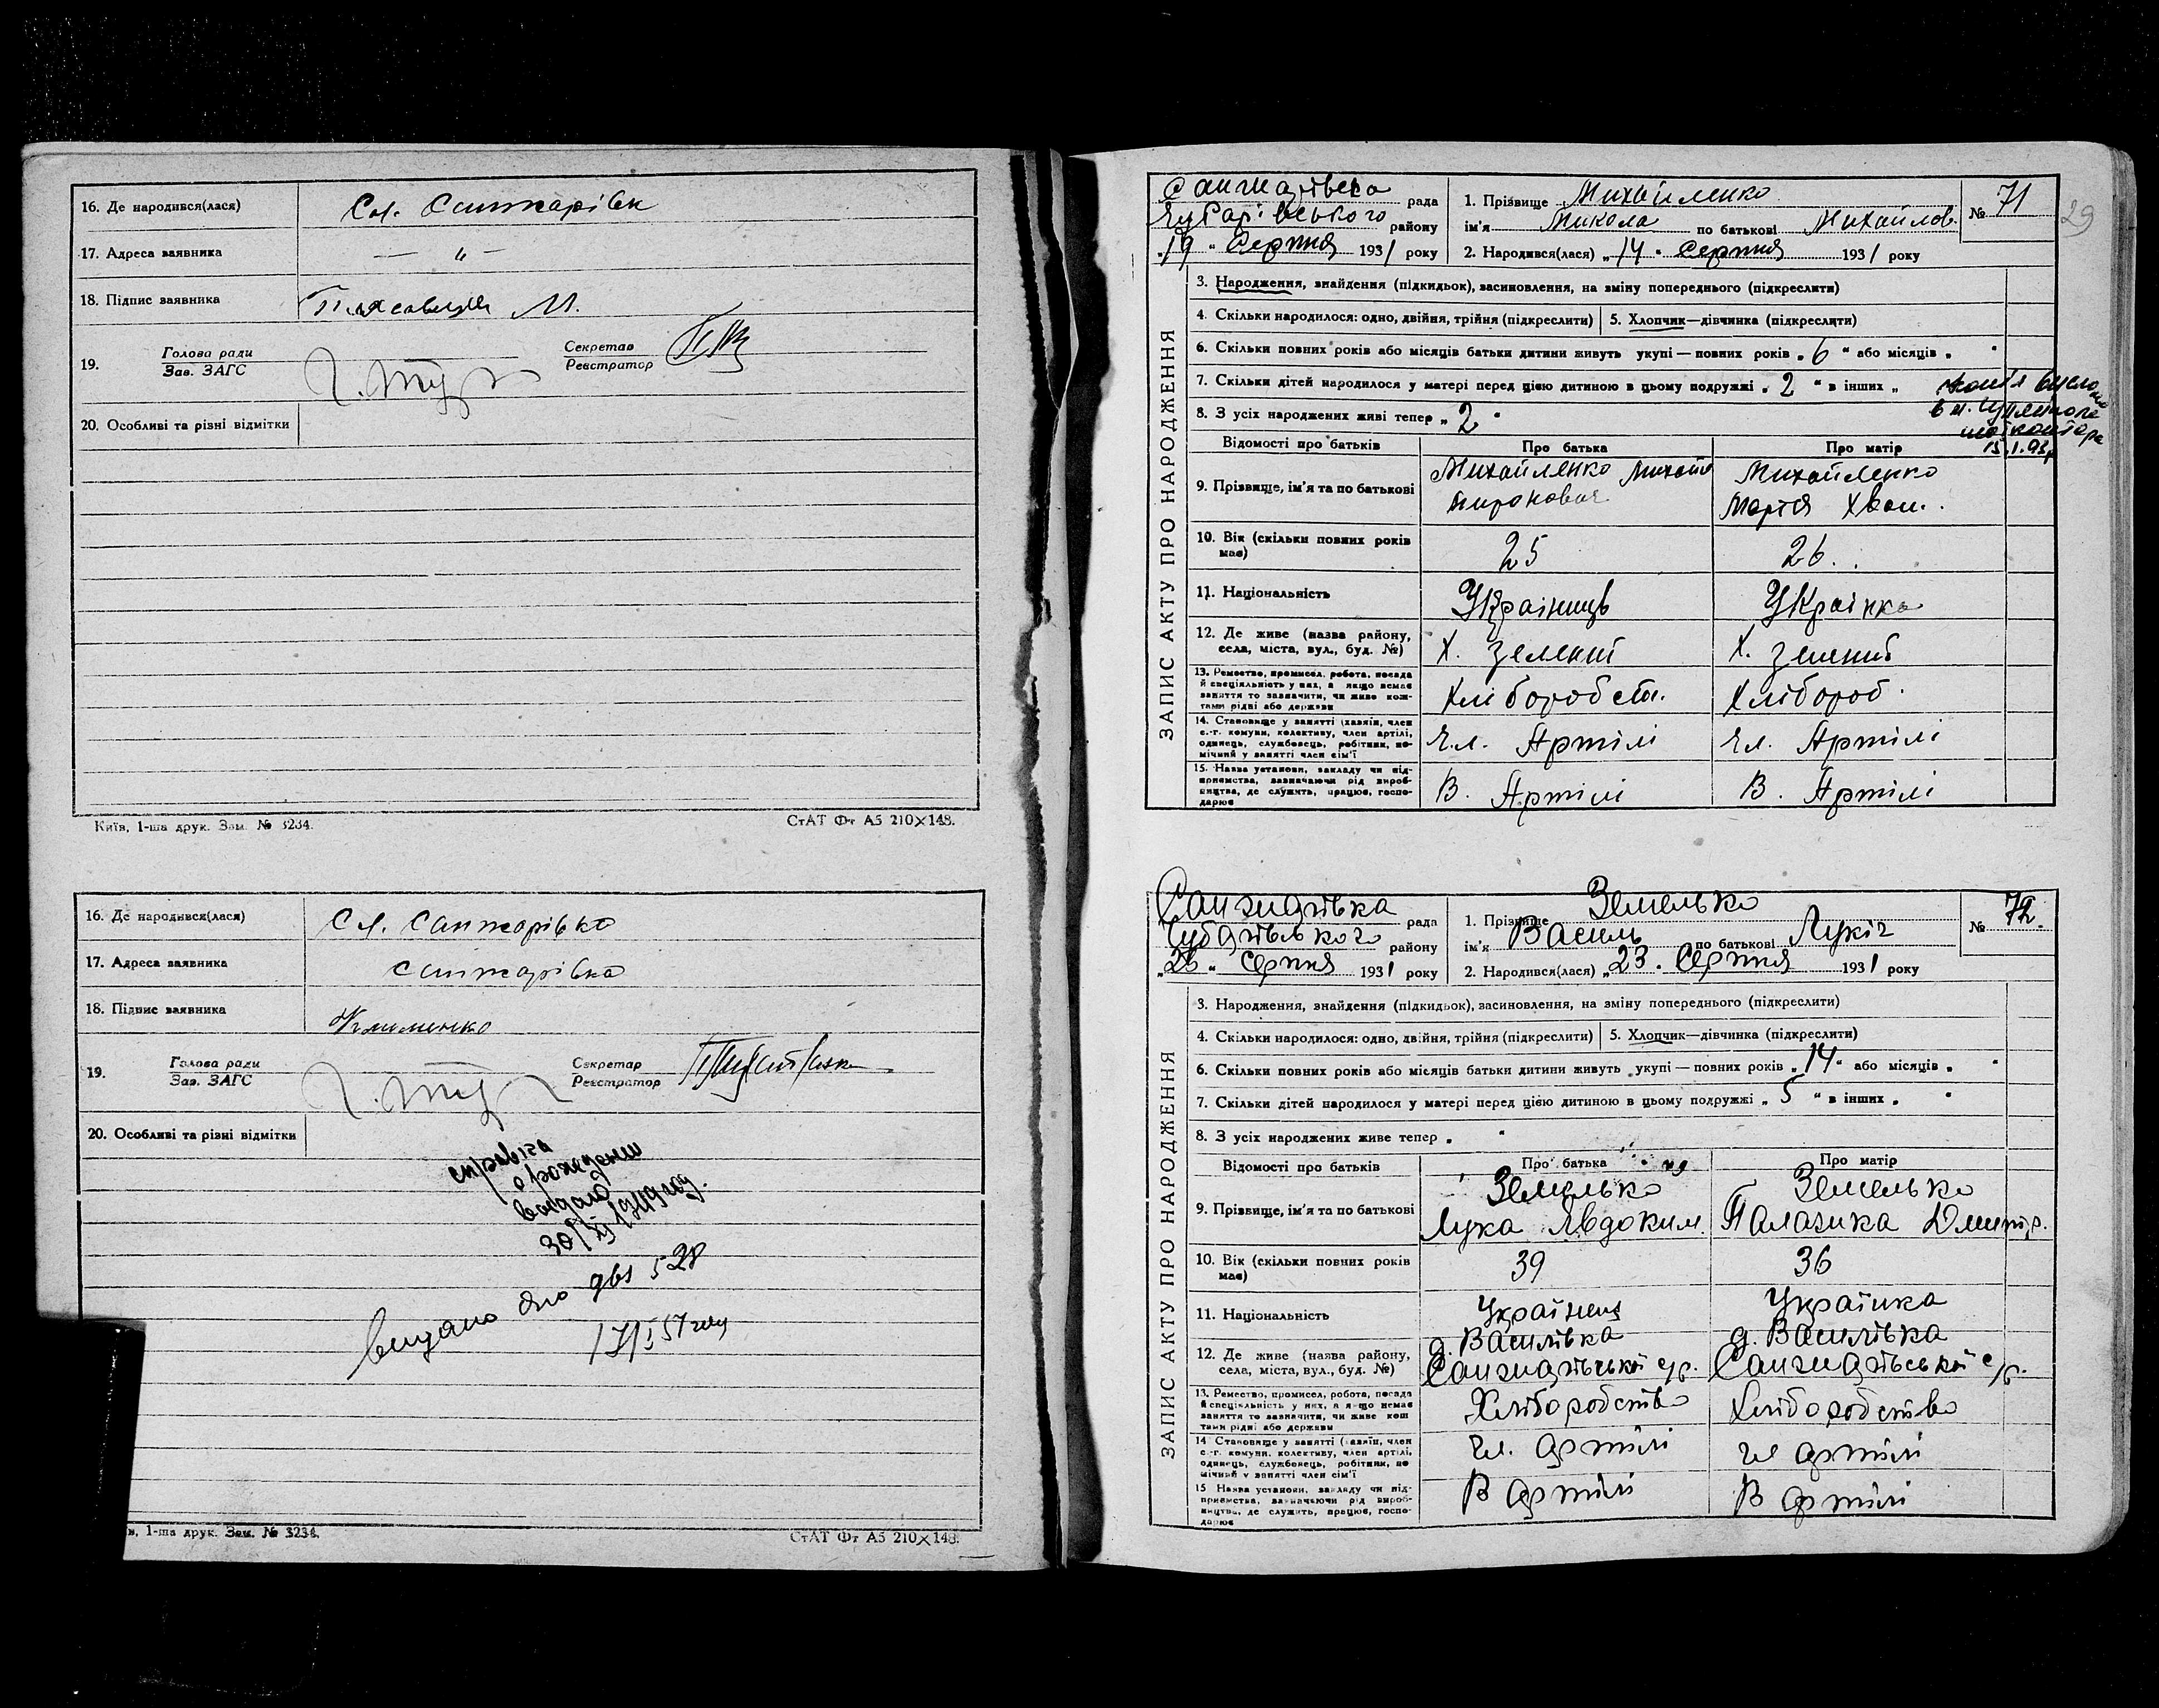 16. Де народився(лася) Сл. Санжарівк
17. Адреса заявника — " —
18. Підпис заявника М.
19. Голова ради
Зав. ЗАГС
Секретар
Реєстратор
20. Особливі та різні відмітки
Київ, 1-ша друк. Зам. № 3234.
СтАТ Ф-т А5 210×148.
16. Де народився(лася) Сл. Санжарівка
17. Адреса заявника Санжарівка
18. Підпис заявника
19. Голова ради
Зав. ЗАГС
Секретар
Реєстратор
20. Особливі та різні відмітки
справка
о рождении
видано
30/XI 1949 год.
видано дво 528
17/I 57 году
в, 1-ша друк. Зам. № 3234.
СтАТ Фт А5 210×148.
29
ЗАПИС АКТУ ПРО НАРОДЖЕННЯ
Санжарівска рада
Чубарівського району
„19" Серпня 1931 року
1. Прізвище Михайленко
ім'я Микола по батькові Михайлов.
2. Народився(лася) „14" Серпня 1931 року
№ 71
3. Народження, знайдення (підкидьок), засиновлення, на зміну попереднього (підкреслити)
4. Скільки народилося: одно, двійня, трійня (підкреслити)
5. Хлопчик—дівчинка (підкреслити)
6. Скільки повних років або місяців батьки дитини живуть укупі — повних років „6" або місяців „ "
7. Скільки дітей народилося у матері перед цією дитиною в цьому подружжі „2" в інших „
8. З усіх народжених живі тепер „2"
копія
в м.
13.1.93р
Відомості про батьків
Про батька
Про матір
9. Прізвище, ім'я та по батькові
Михайленко Михайло
Миронович
Михайленко
Марія Хван.
10. Вік (скільки повних років має)
25
26.
11. Національність
Українць
Українка
12. Де живе (назва району, села, міста, вул., буд. №)
Х. Зелений
Х. Зелений
13. Ремество, промисел, робота, посада й спеціяльність у них, а якщо немає заняття то зазначити, чи живе коштами рідні або держави
Хліборобст.
Хлібороб.
14. Становище у занятті (хазяїн, член с.-г. комуни, колективу, член артілі, одинець, службовець, робітник, помічний у занятті член сім'ї
Чл. Артілі
Чл. Артілі
15. Назва установи, закладу чи підприємства, зазначаючи рід виробництва, де служить, працює, господарює
В. Артілі
В. Артілі
ЗАПИС АКТУ ПРО НАРОДЖЕННЯ
Санжарівка рада
Чубарівського району
„26" Серпня 1931 року
1. Прізвище Земелько
ім'я Василь по батькові Лукіч
2. Народився(лася) „23" Серпня 1931 року
№ 72.
3. Народження, знайдення (підкидьок), засиновлення, на зміну попереднього (підкреслити)
4. Скільки народилося: одно, двійня, трійня (підкреслити)
5. Хлопчик—дівчинка (підкреслити)
6. Скільки повних років або місяців батьки дитини живуть укупі — повних років „14" або місяців „ "
7. Скільки дітей народилося у матері перед цією дитиною в цьому подружжі „5" в інших „ "
8. З усіх народжених живе тепер „ "
Відомості про батьків
Про батька
Про матір
9. Прізвище, ім'я та по батькові
Земелько
Лука Явдоким.
Земелько
Палазика Дмитр.
10. Вік (скільки повних років має)
39
36
11. Національність
Українець
Українка
12. Де живе (назва району, села, міста, вул., буд. №)
д. Василівка
Санжарівської с/р.
д. Василівка
Санжарівської с/р.
13. Ремество, промисел, робота, посада й спеціяльність у них, а якщо немає заняття то зазначити, чи живе коштами рідні або держави
Хліборобство
Хліборобство
14 Становище у занятті (хазяїн, член с.-г. комуни, колективу, член артілі, одинець, службовець, робітник, помічний у занятті член сім'ї
Чл. артілі
Чл артілі
15 Назва установи, закладу чи підприємства, зазначаючи рід виробництва, де служить, працює, господарює
В артілі
В артілі